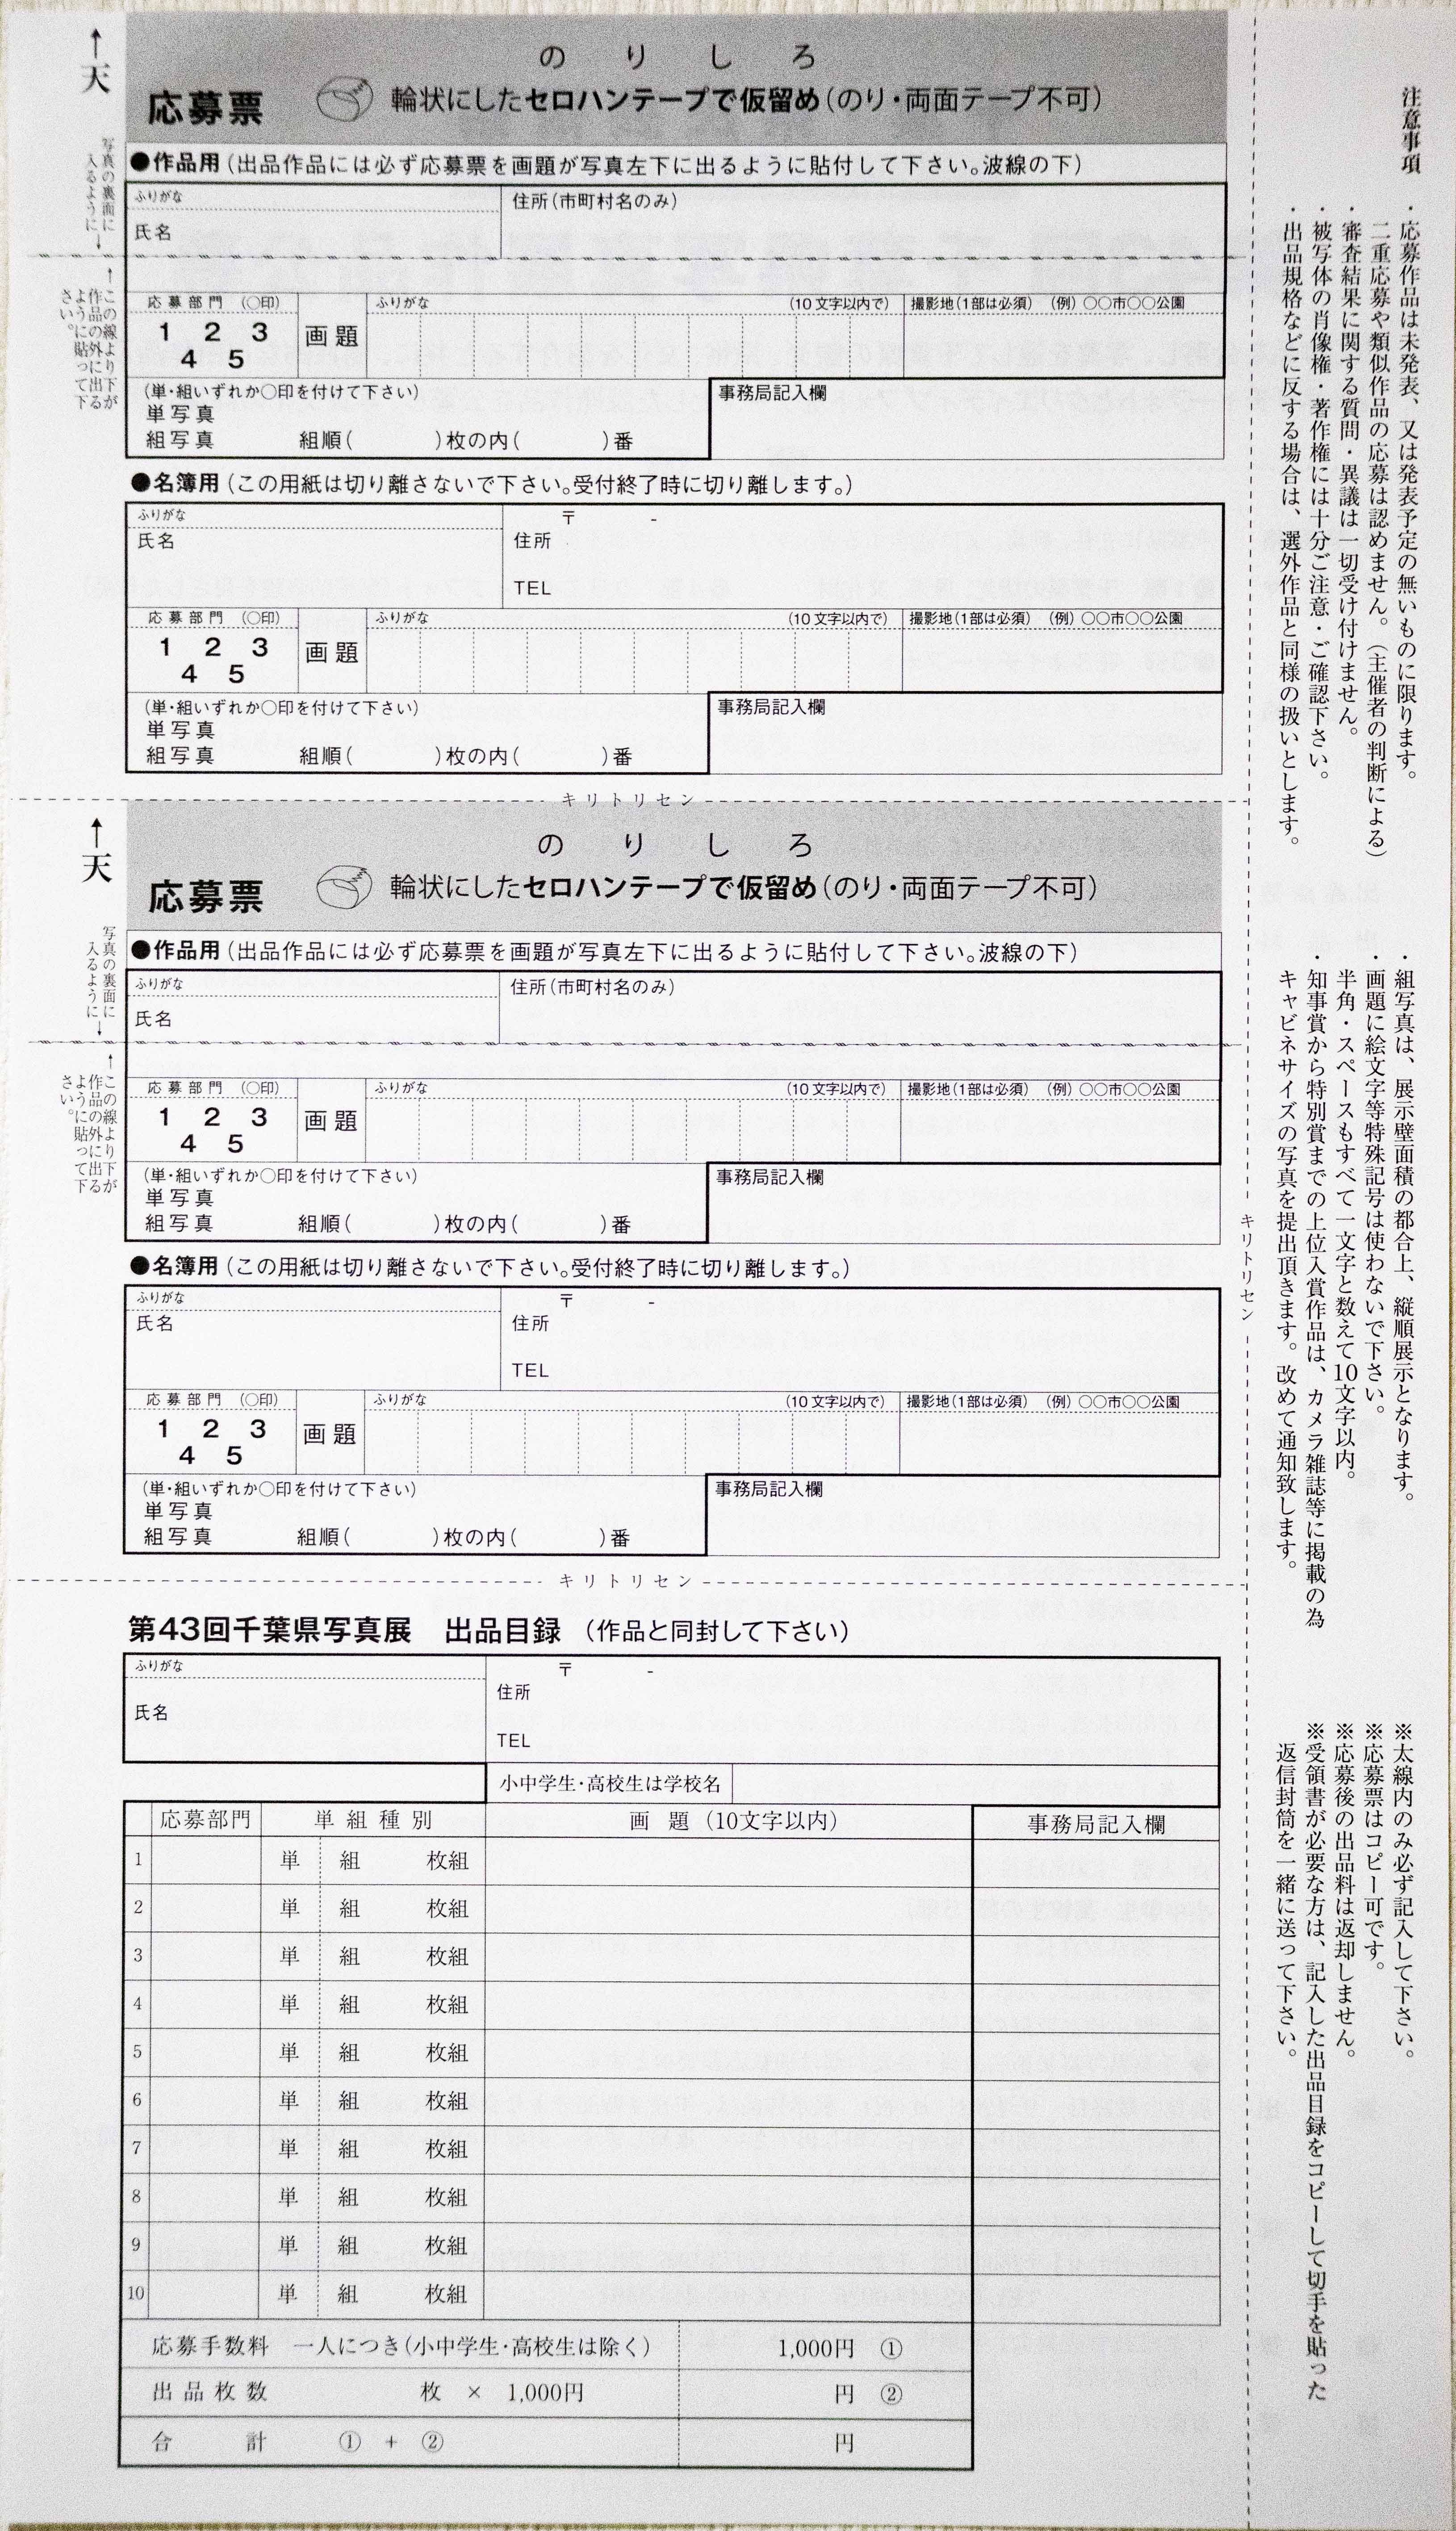 ↑天
のりしろ
応募票 輪状にしたセロハンテープで仮留め(のり・両面テープ不可)
写真の裏面に
入るように→
●作品用(出品作品には必ず応募票を画題が写真左下に出るように貼付して下さい。波線の下)
ふりがな 住所(市町村名のみ)
氏名
←この線より下が
作品の外に出る
ように貼って下
さい。
応募部門 (〇印) ふりがな (10文字以内で) 撮影地(1部は必須) (例)〇〇市〇〇公園
1 2 3
4 5
画題
(単・組いずれか〇印を付けて下さい) 事務局記入欄
単写真
組写真 組順( )枚の内( )番
●名簿用(この用紙は切り離さないで下さい。受付終了時に切り離します。)
ふりがな 〒 -
氏名 住所
TEL
応募部門 (〇印) ふりがな (10文字以内で) 撮影地(1部は必須) (例)〇〇市〇〇公園
1 2 3
4 5
画題
(単・組いずれか〇印を付けて下さい) 事務局記入欄
単写真
組写真 組順( )枚の内( )番
キリトリセン
↑天
のりしろ
応募票 輪状にしたセロハンテープで仮留め(のり・両面テープ不可)
写真の裏面に
入るように→
●作品用(出品作品には必ず応募票を画題が写真左下に出るように貼付して下さい。波線の下)
ふりがな 住所(市町村名のみ)
氏名
←この線より下が
作品の外に出る
ように貼って下
さい。
応募部門 (〇印) ふりがな (10文字以内で) 撮影地(1部は必須) (例)〇〇市〇〇公園
1 2 3
4 5
画題
(単・組いずれか〇印を付けて下さい) 事務局記入欄
単写真
組写真 組順( )枚の内( )番
●名簿用(この用紙は切り離さないで下さい。受付終了時に切り離します。)
ふりがな 〒 -
氏名 住所
TEL
応募部門 (〇印) ふりがな (10文字以内で) 撮影地(1部は必須) (例)〇〇市〇〇公園
1 2 3
4 5
画題
(単・組いずれか〇印を付けて下さい) 事務局記入欄
単写真
組写真 組順( )枚の内( )番
キリトリセン
第43回千葉県写真展 出品目録 (作品と同封して下さい)
ふりがな 〒 -
氏名 住所
TEL
小中学生・高校生は学校名
応募部門 単組種別 画題(10文字以内) 事務局記入欄
1 単 組 枚組
2 単 組 枚組
3 単 組 枚組
4 単 組 枚組
5 単 組 枚組
6 単 組 枚組
7 単 組 枚組
8 単 組 枚組
9 単 組 枚組
10 単 組 枚組
応募手数料 一人につき(小中学生・高校生は除く) 1,000円 ①
出品枚数 枚 × 1,000円 円 ②
合計 ① + ② 円
キリトリセン
注意事項
・応募作品は未発表、又は発表予定の無いものに限ります。
二重応募や類似作品の応募は認めません。(主催者の判断による)
・審査結果に関する質問・異議は一切受け付けません。
・被写体の肖像権・著作権には十分ご注意・ご確認下さい。
・出品規格などに反する場合は、選外作品と同様の扱いとします。
・組写真は、展示壁面積の都合上、縦順展示となります。
・画題に絵文字等特殊記号は使わないで下さい。
半角・スペースもすべて一文字と数えて10文字以内。
・知事賞から特別賞までの上位入賞作品は、カメラ雑誌等に掲載の為
キャビネサイズの写真を提出頂きます。改めて通知致します。
※太線内のみ必ず記入して下さい。
※応募票はコピー可です。
※応募後の出品料は返却しません。
※受領書が必要な方は、記入した出品目録をコピーして切手を貼った
返信封筒を一緒に送って下さい。